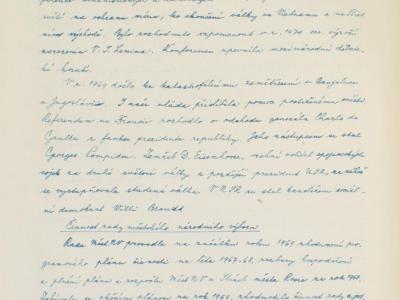 nutí na ochranu míru, ke skončení války ve Vietnamu a na Blíz-
kém východě. Bylo rozhodnuto vzpomenout v r. 1970 100. výročí
narození V. I. Lenina. Konference upevnila mezinárodní dělnic-
ké hnutí.
V r. 1969 došlo ke katastrofálnímu zemětřesení v Banjaluce
v Jugoslávii. I naše vláda přislíbila pomoc postiženému městu.
Referendum ve Francii rozhodlo o odchodu generála Charle de
Gaulla z funkce presidenta republiky. Jeho nástupcem se stal
Georges Pompidu. Zemřel D. Eisenhower, velitel spojeneckých
vojsk za druhé světové války a pozdější president USA, za něhož
se vystupňovala studená válka. V NSR se stal kancléřem sociál-
ní demokrat Willi Brandt
Činnost rady městského národního výboru
Rada MěstNV provedla na začátku roku 1969 zhodnocení pro-
gramového plánu činnosti na léta 1967-68, rozbory hospodaření
a plnění plánu a rozpočtu MěstNV a města za rok 1968.
za rok 1968, zhodnotila činnost rady a